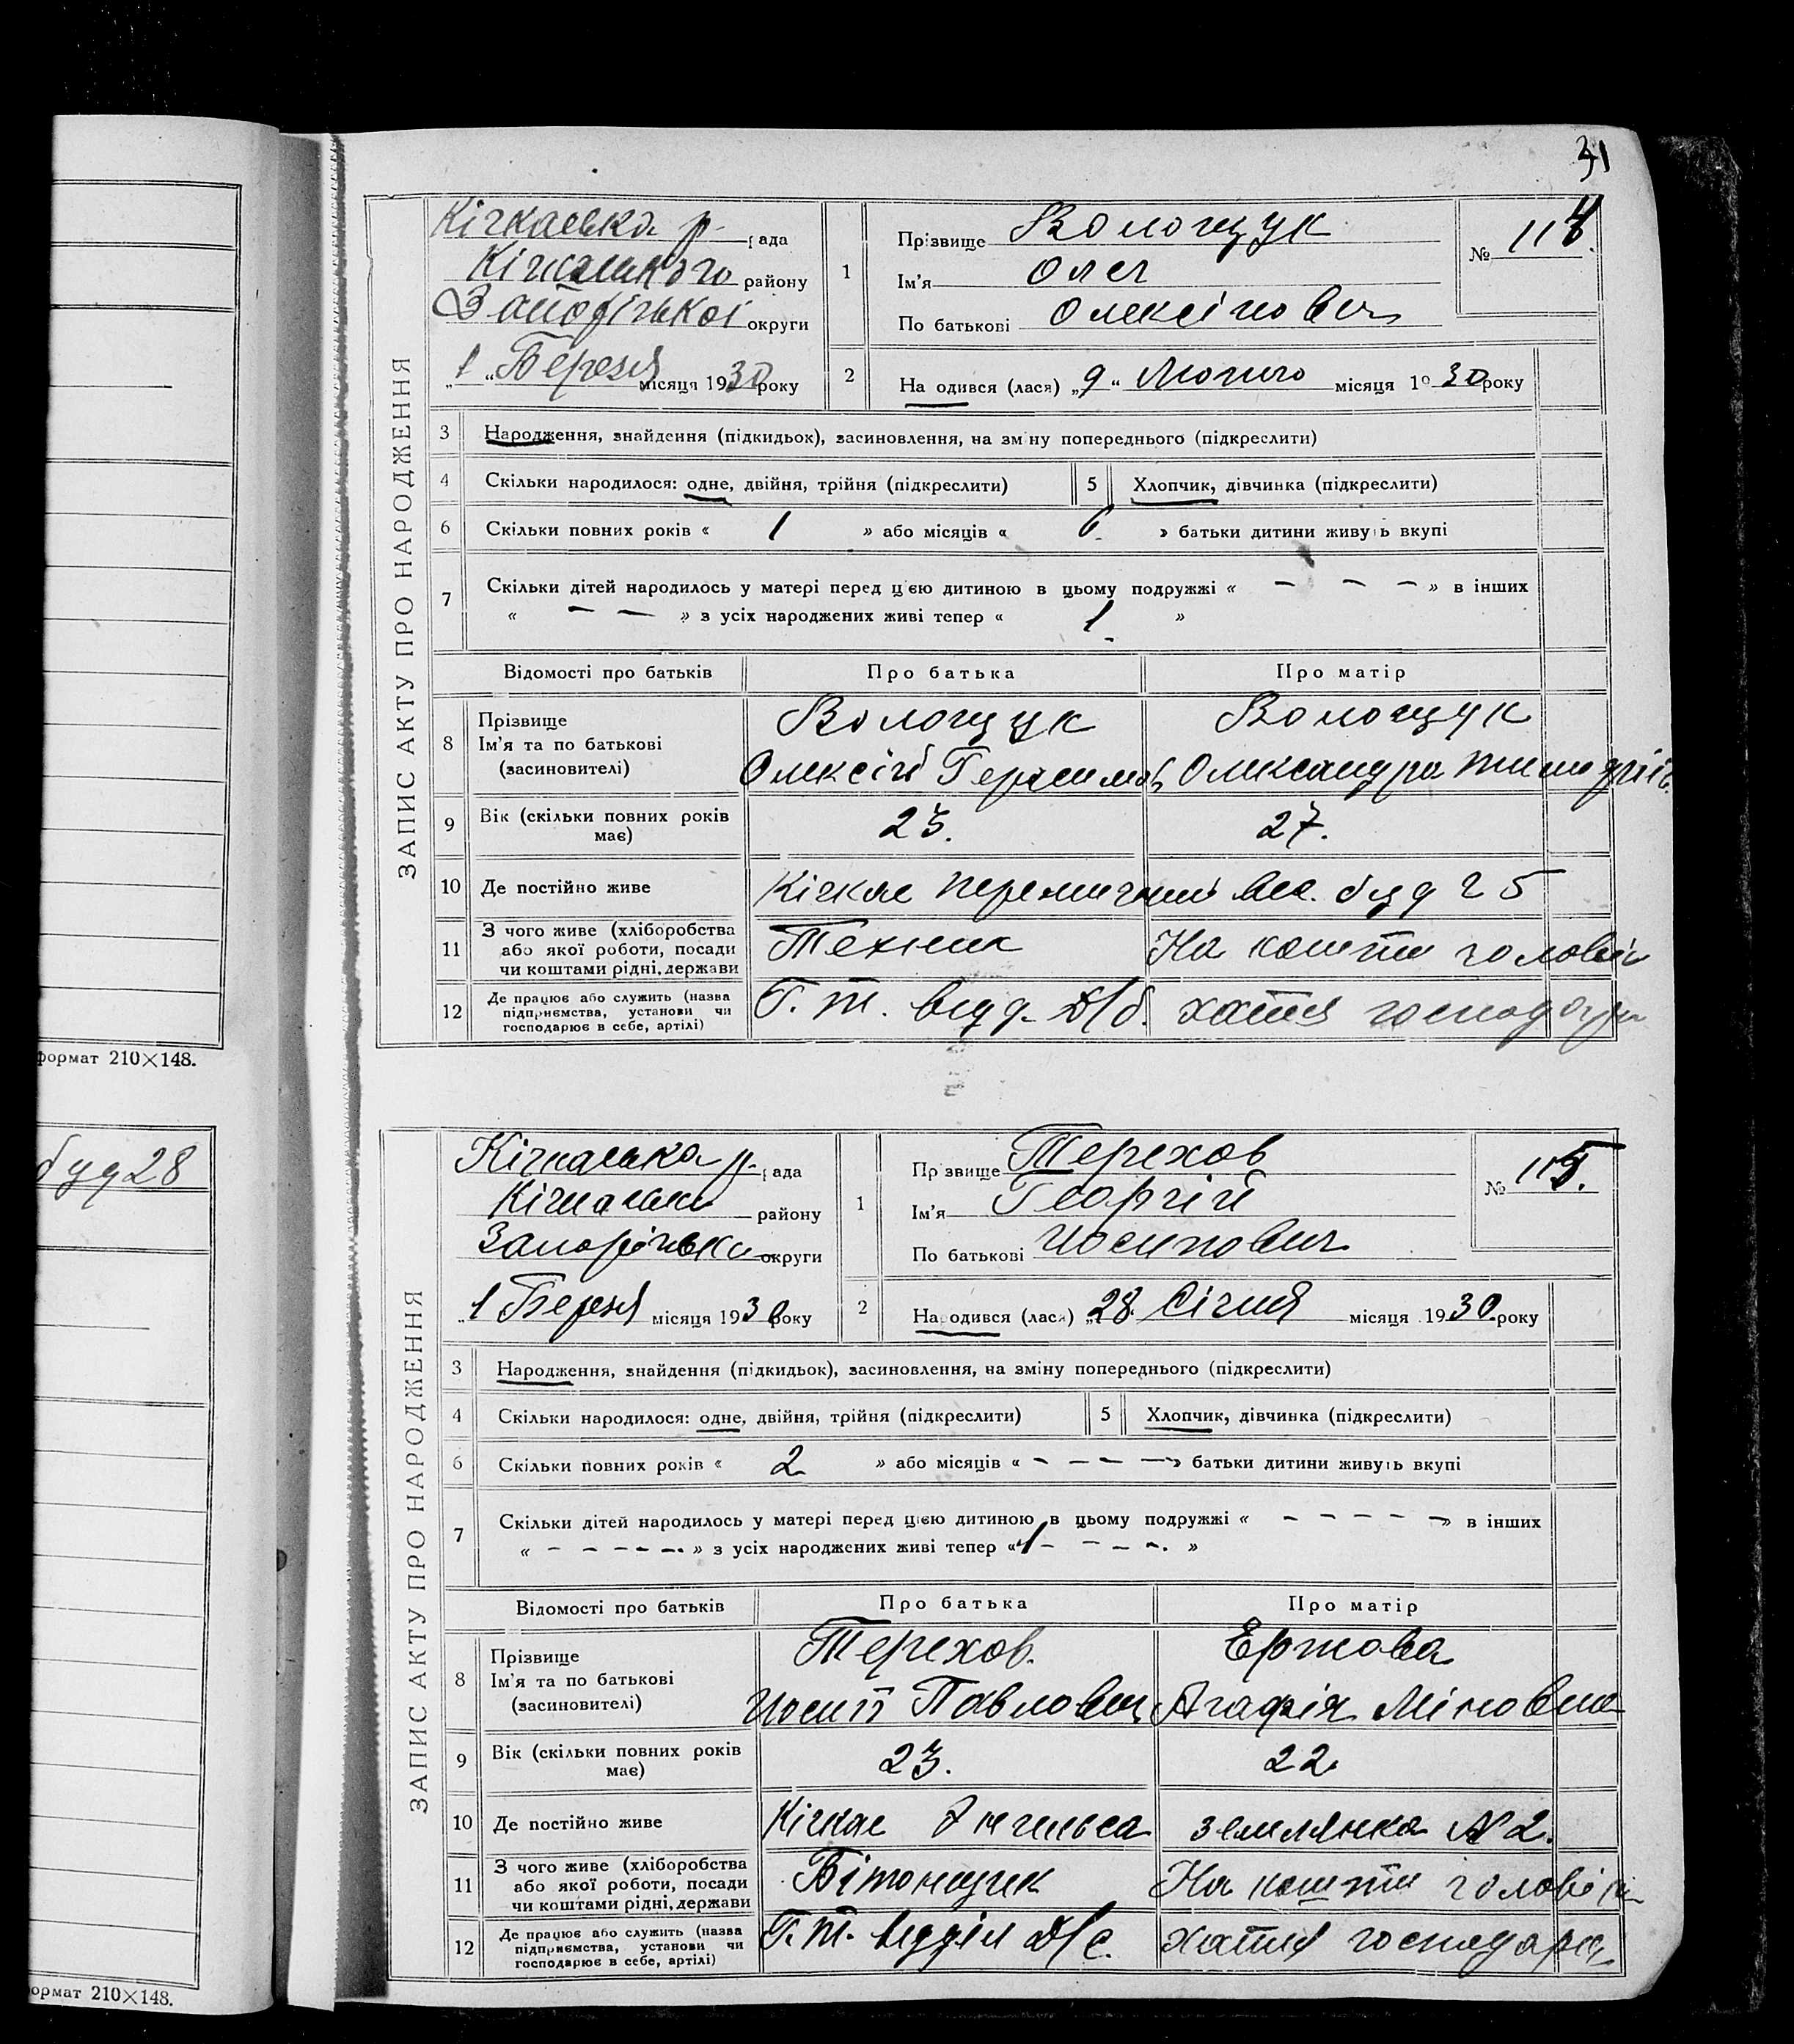 31
ЗАПИС АКТУ ПРО НАРОДЖЕННЯ
Кічкаська р. рада
Кічкаського району
Запорізької округи
„1“ Березня місяця 1930 року
1 Прізвище Волощук
Ім'я Олег
По батькові Олексійович
№ 114.
2 Народився (лася) „9“ Лютого місяця 1930 року
3 Народження, знайдення (підкидьок), засиновлення, на зміну попереднього (підкреслити)
4 Скільки народилося: одне, двійня, трійня (підкреслити) 5 Хлопчик, дівчинка (підкреслити)
6 Скільки повних років « 1 » або місяців « 6. » батьки дитини живуть вкупі
7 Скільки дітей народилось у матері перед цією дитиною в цьому подружжі « — — — » в інших
« — — » з усіх народжених живі тепер « 1 »
Відомості про батьків Про батька Про матір
8 Прізвище Волощук Волощук
Ім'я та по батькові
(засиновителі) Олексій Герасимов Олександра
9 Вік (скільки повних років має) 23. 27.
10 Де постійно живе Кічкас буд 25
11 З чого живе (хліборобства або якої роботи, посади чи коштами рідні, держави Технік На кошти чоловіка
12 Де працює або служить (назва підприємства, установи чи господарює в себе, артілі) Г. т. відд. хатня господарка
формат 210×148.
буд 28
ЗАПИС АКТУ ПРО НАРОДЖЕННЯ
Кічкаська р. рада
Кічкаськи району
Запорізька округи
„1 Березня місяця 1930 року
1 Прізвище Терехов
Ім'я Георгій
По батькові Иосипович
№ 115.
2 Народився (лася) „28. Січня місяця 1930. року
3 Народження, знайдення (підкидьок), засиновлення, на зміну попереднього (підкреслити)
4 Скільки народилося: одне, двійня, трійня (підкреслити) 5 Хлопчик, дівчинка (підкреслити)
6 Скільки повних років « 2 » або місяців « — — — — » батьки дитини живуть вкупі
7 Скільки дітей народилось у матері перед цією дитиною в цьому подружжі « — — — — — » в інших
« — — — — — » з усіх народжених живі тепер « 1 — — — — . »
Відомості про батьків Про батька Про матір
8 Прізвище Терехов. Ершова
Ім'я та по батькові
(засиновителі) Иосип Павлович Агафія Міновна
9 Вік (скільки повних років має) 23. 22.
10 Де постійно живе Кічкас Энгельса землянка № 2.
11 З чого живе (хліборобства або якої роботи, посади чи коштами рідні, держави Бітонщик На кошти чоловіка
12 Де працює або служить (назва підприємства, установи чи господарює в себе, артілі) Г. т. відділ Д/с. хатня господарка
формат 210×148.